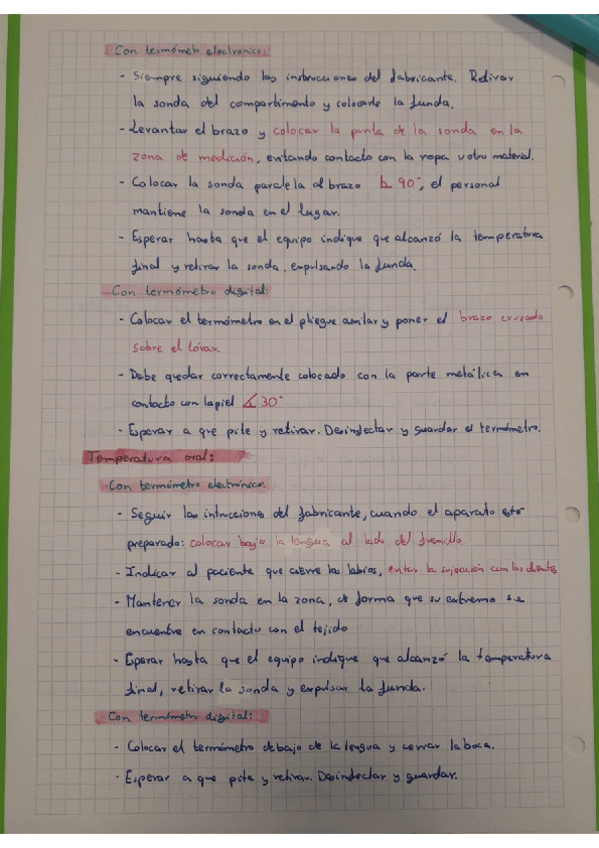 Con termómeto electronico:
- Siempre siguiendo las instrucciones del fabricante. Retirar
la sonda del compartimento y colocarle la funda.
- Levantar el brazo y colocar la punta de la sonda en la
zona de medición, evitando contacto con la ropa u otro material.
- Colocar la sonda paralela al brazo 90°, el personal
mantiene la sonda en el lugar.
- Esperar hasta que el equipo indique que alcanzó la temperatura
final y retirar la sonda, expulsando la funda.
- Con termómetro digital:
- Colocar el termómetro en el pliegue axilar y poner el brazo cruzado
sobre el tórax.
- Debe quedar correctamente colocado con la parte metálica en
contacto con la piel ∡ 30°
- Esperar a que pite y retirar. Desinfectar y guardar el termómetro.
Temperatura oral:
- Con termómetro electrónico:
- Seguir las intrucciones del fabricante, cuando el aparato este
preparado: colocar bajo la lengua al lado del frenillo
- Indicar al paciente que cierre los labios, evitar la sujeción con los dientes
- Mantener la sonda en la zona, de forma que su extremo se
encuentre en contacto con el tejido
- Eperar hasta que el equipo indique que alcanzó la temperatura
final, retirar la sonda y expulsar la funda.
Con termómetro digital:
- Colocar el termómetro debajo de la lengua y cerrar la boca.
- Esperar a que pite y retirar. Desinfectar y guardar.